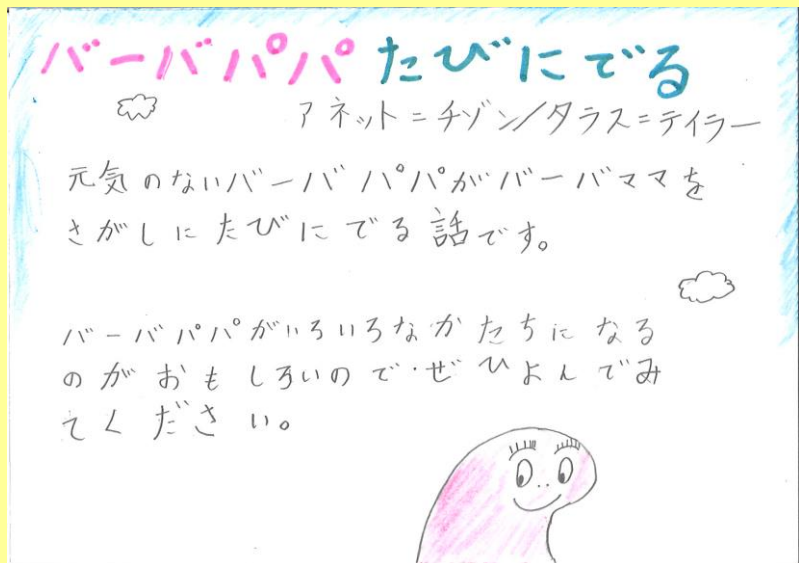 バーバパパたびにでる
アネット=チゾン/タラス=テイラー
元気のないバーバパパがバーバママを
さがしにたびにでる話です。
バーバパパがいろいろなかたちになる
のがおもしろいので・ぜひよんでみ
てください。